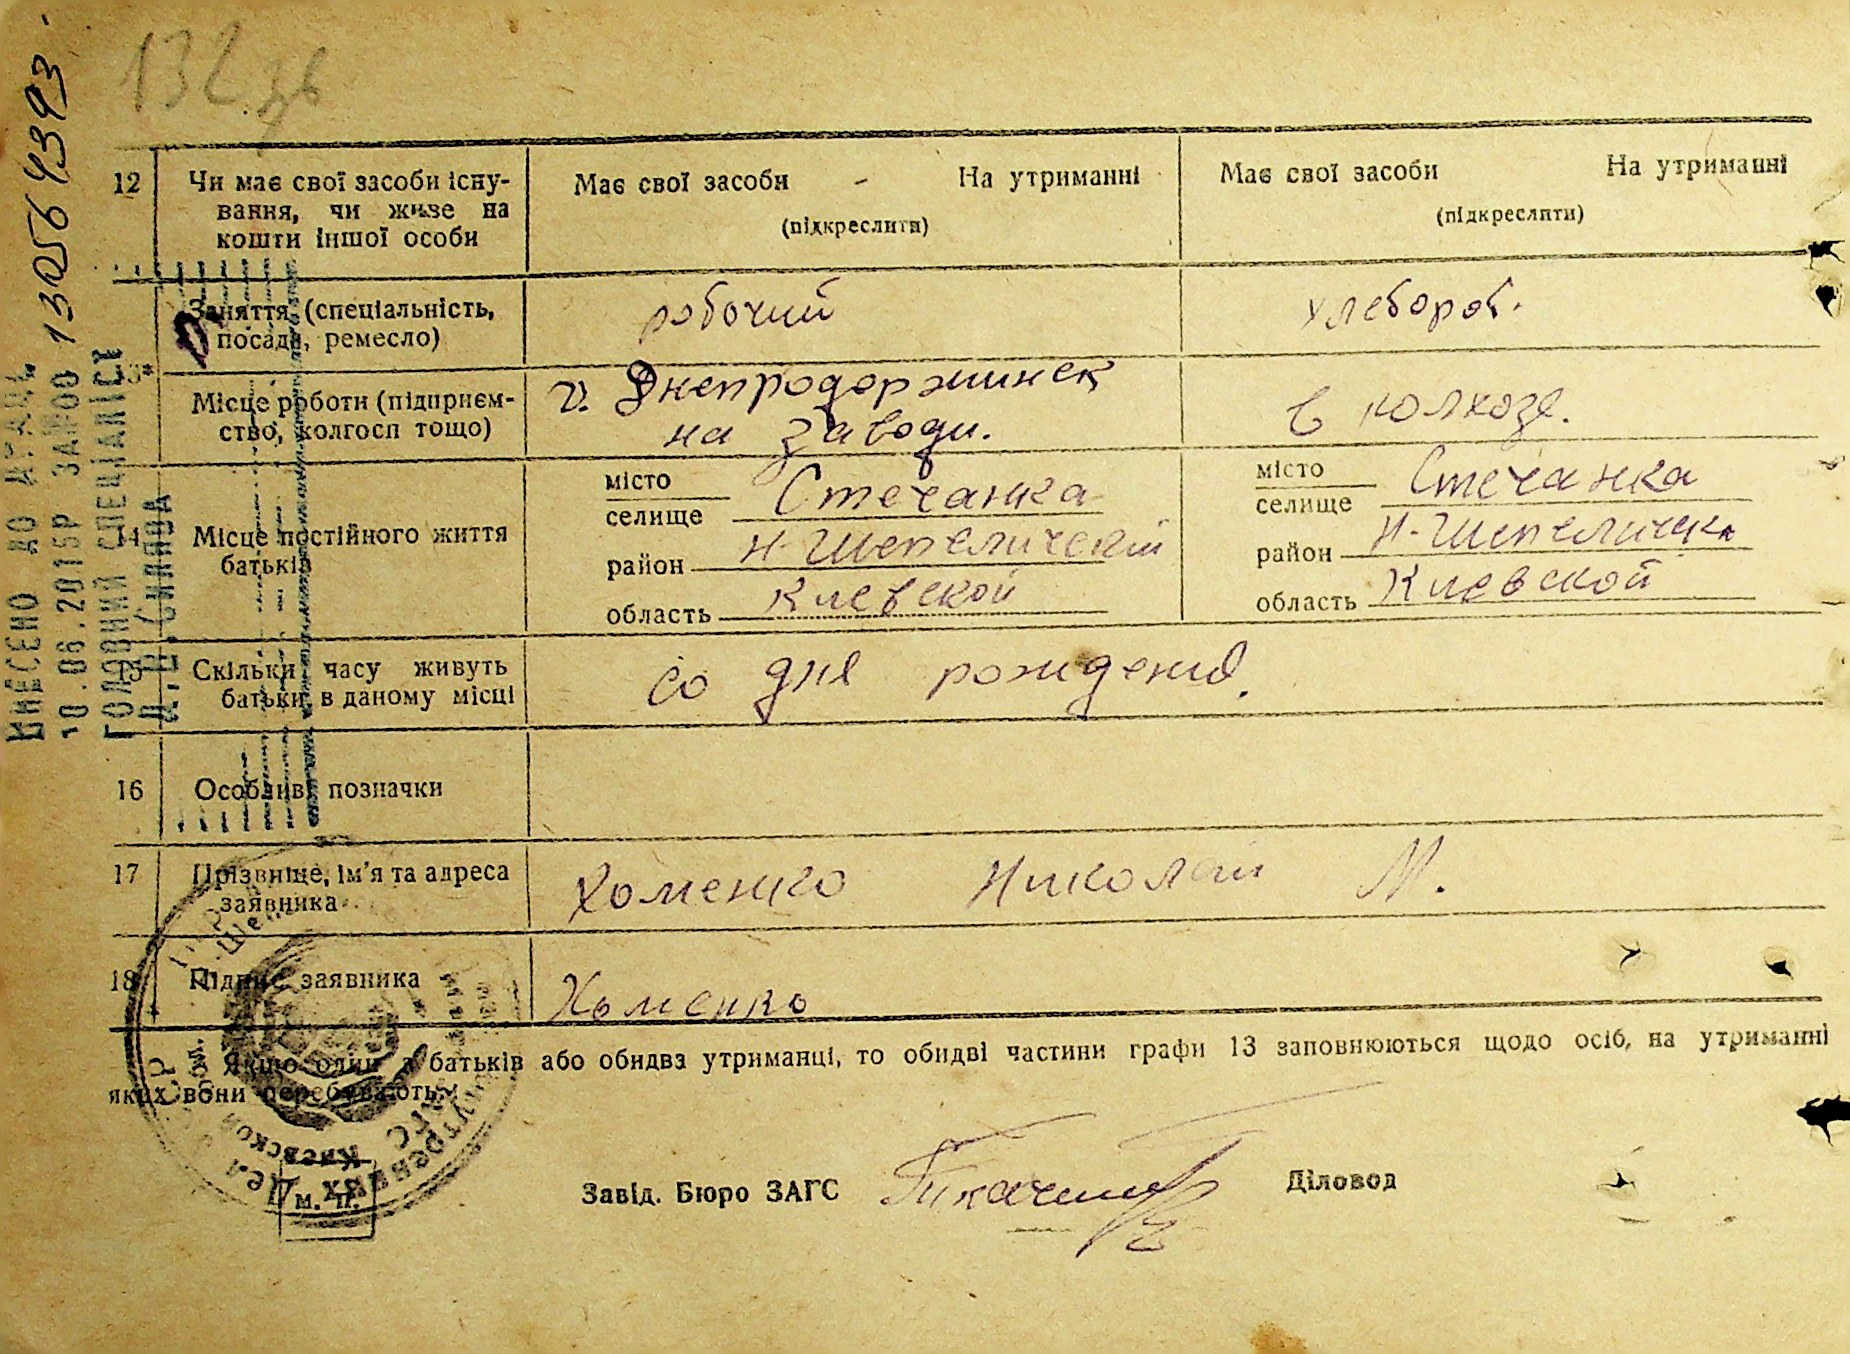 132 зв
12 Чи має свої засоби існу-
вання, чи живе на
кошти іншої особи
Має свої засоби - На утриманні
(підкреслити)
Має свої засоби На утриманні
(підкреслити)
Заняття (спеціальність,
посада, ремесло)
робочий
хлебороб.
Місце роботи (підприєм-
ство, колгосп тощо)
г. Днепродоржинск
на заводи.
в колхозе.
14 Місце постійного життя
батьків
місто
селище Стечанка
район Н-Шепеличский
область Киевской
місто
селище Стечанка
район Н-Шепеличск
область Киевской
15 Скільки часу живуть
батьки в даному місці
со дня рождения.
16 Особливі позначки
17 Прізвище, ім'я та адреса
заявника
Хоменко Николай М.
18 Підпис заявника
Хоменко
Якщо один з батьків або обидва утриманці, то обидві частини графи 13 заповнюються щодо осіб, на утриманні
яких вони перебувають.
Завід. Бюро ЗАГС
Діловод
м. п.
ВНЕСЕНО ДО
10.06.2015Р ЗА №00 130564393
ГОЛОВНИЙ СПЕЦІАЛІСТ